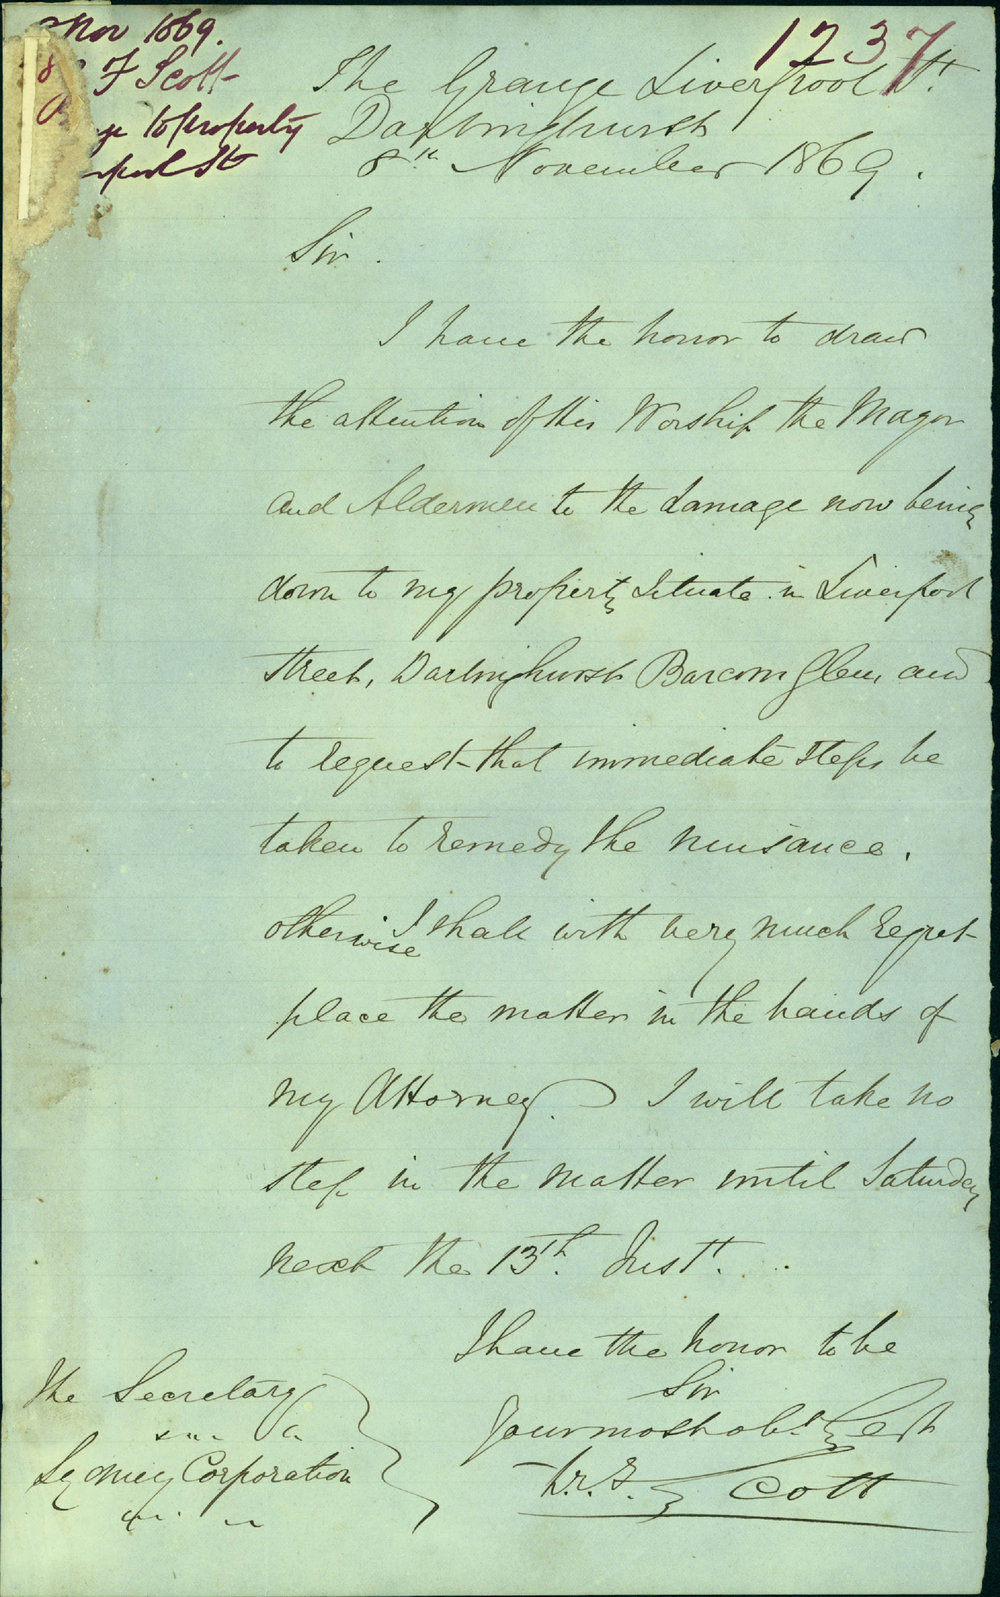 Nov 1869.
F Scott
to property
St
1237
The Grange Liverpool St.
Darlinghurst
8th November 1869.
Sir.
I have the honor to draw
the attention of His Worship the Mayor
and Aldermen to the damage now being
down to my property situate in Liverpool
Street, Darlinghurst Barcom Glen and
to request that immediate steps be
taken to remedy the nuisance.
otherwise I shall with very much regret
place the matter in the hands of
my Attorney. I will take no
step in the matter until Saturday
next the 13th Inst.
I have the honor to be
Sir
Your most obt. Sert
Scott
The Secretary
Sydney Corporation